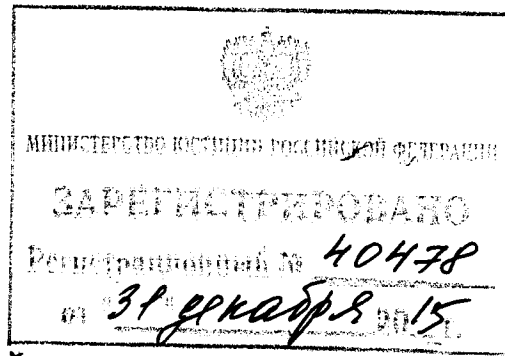 МИНИСТЕРСТВО ЮСТИЦИИ РОССИЙСКОЙ ФЕДЕРАЦИИ
ЗАРЕГИСТРИРОВАНО
Регистрационный № 40478
от "31" декабря 2015 г.